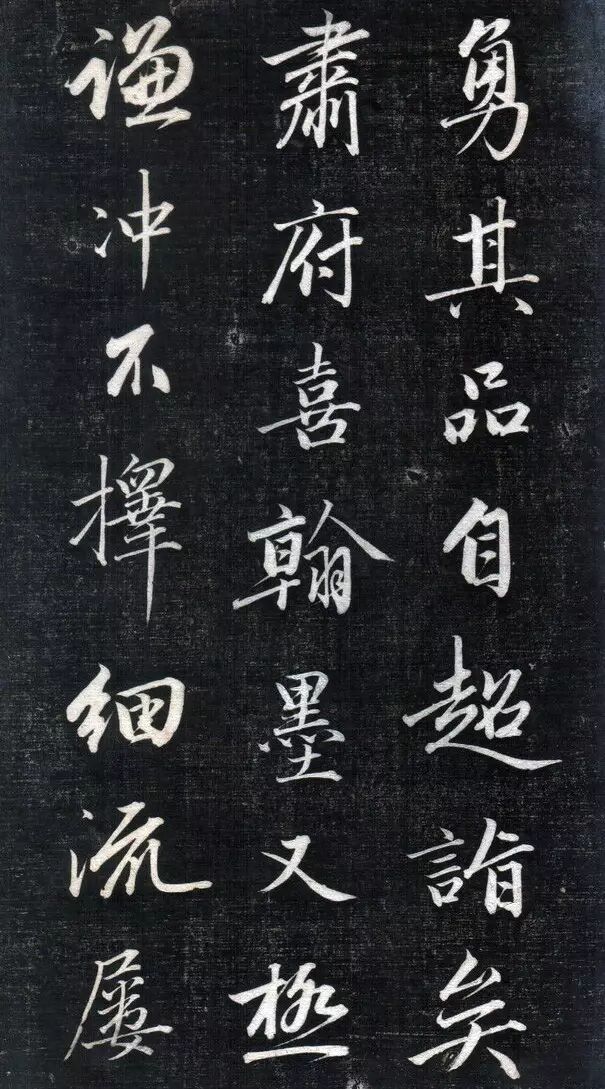 勇其品自超詣矣
肅府喜翰墨又極
謙冲不擇細流屢